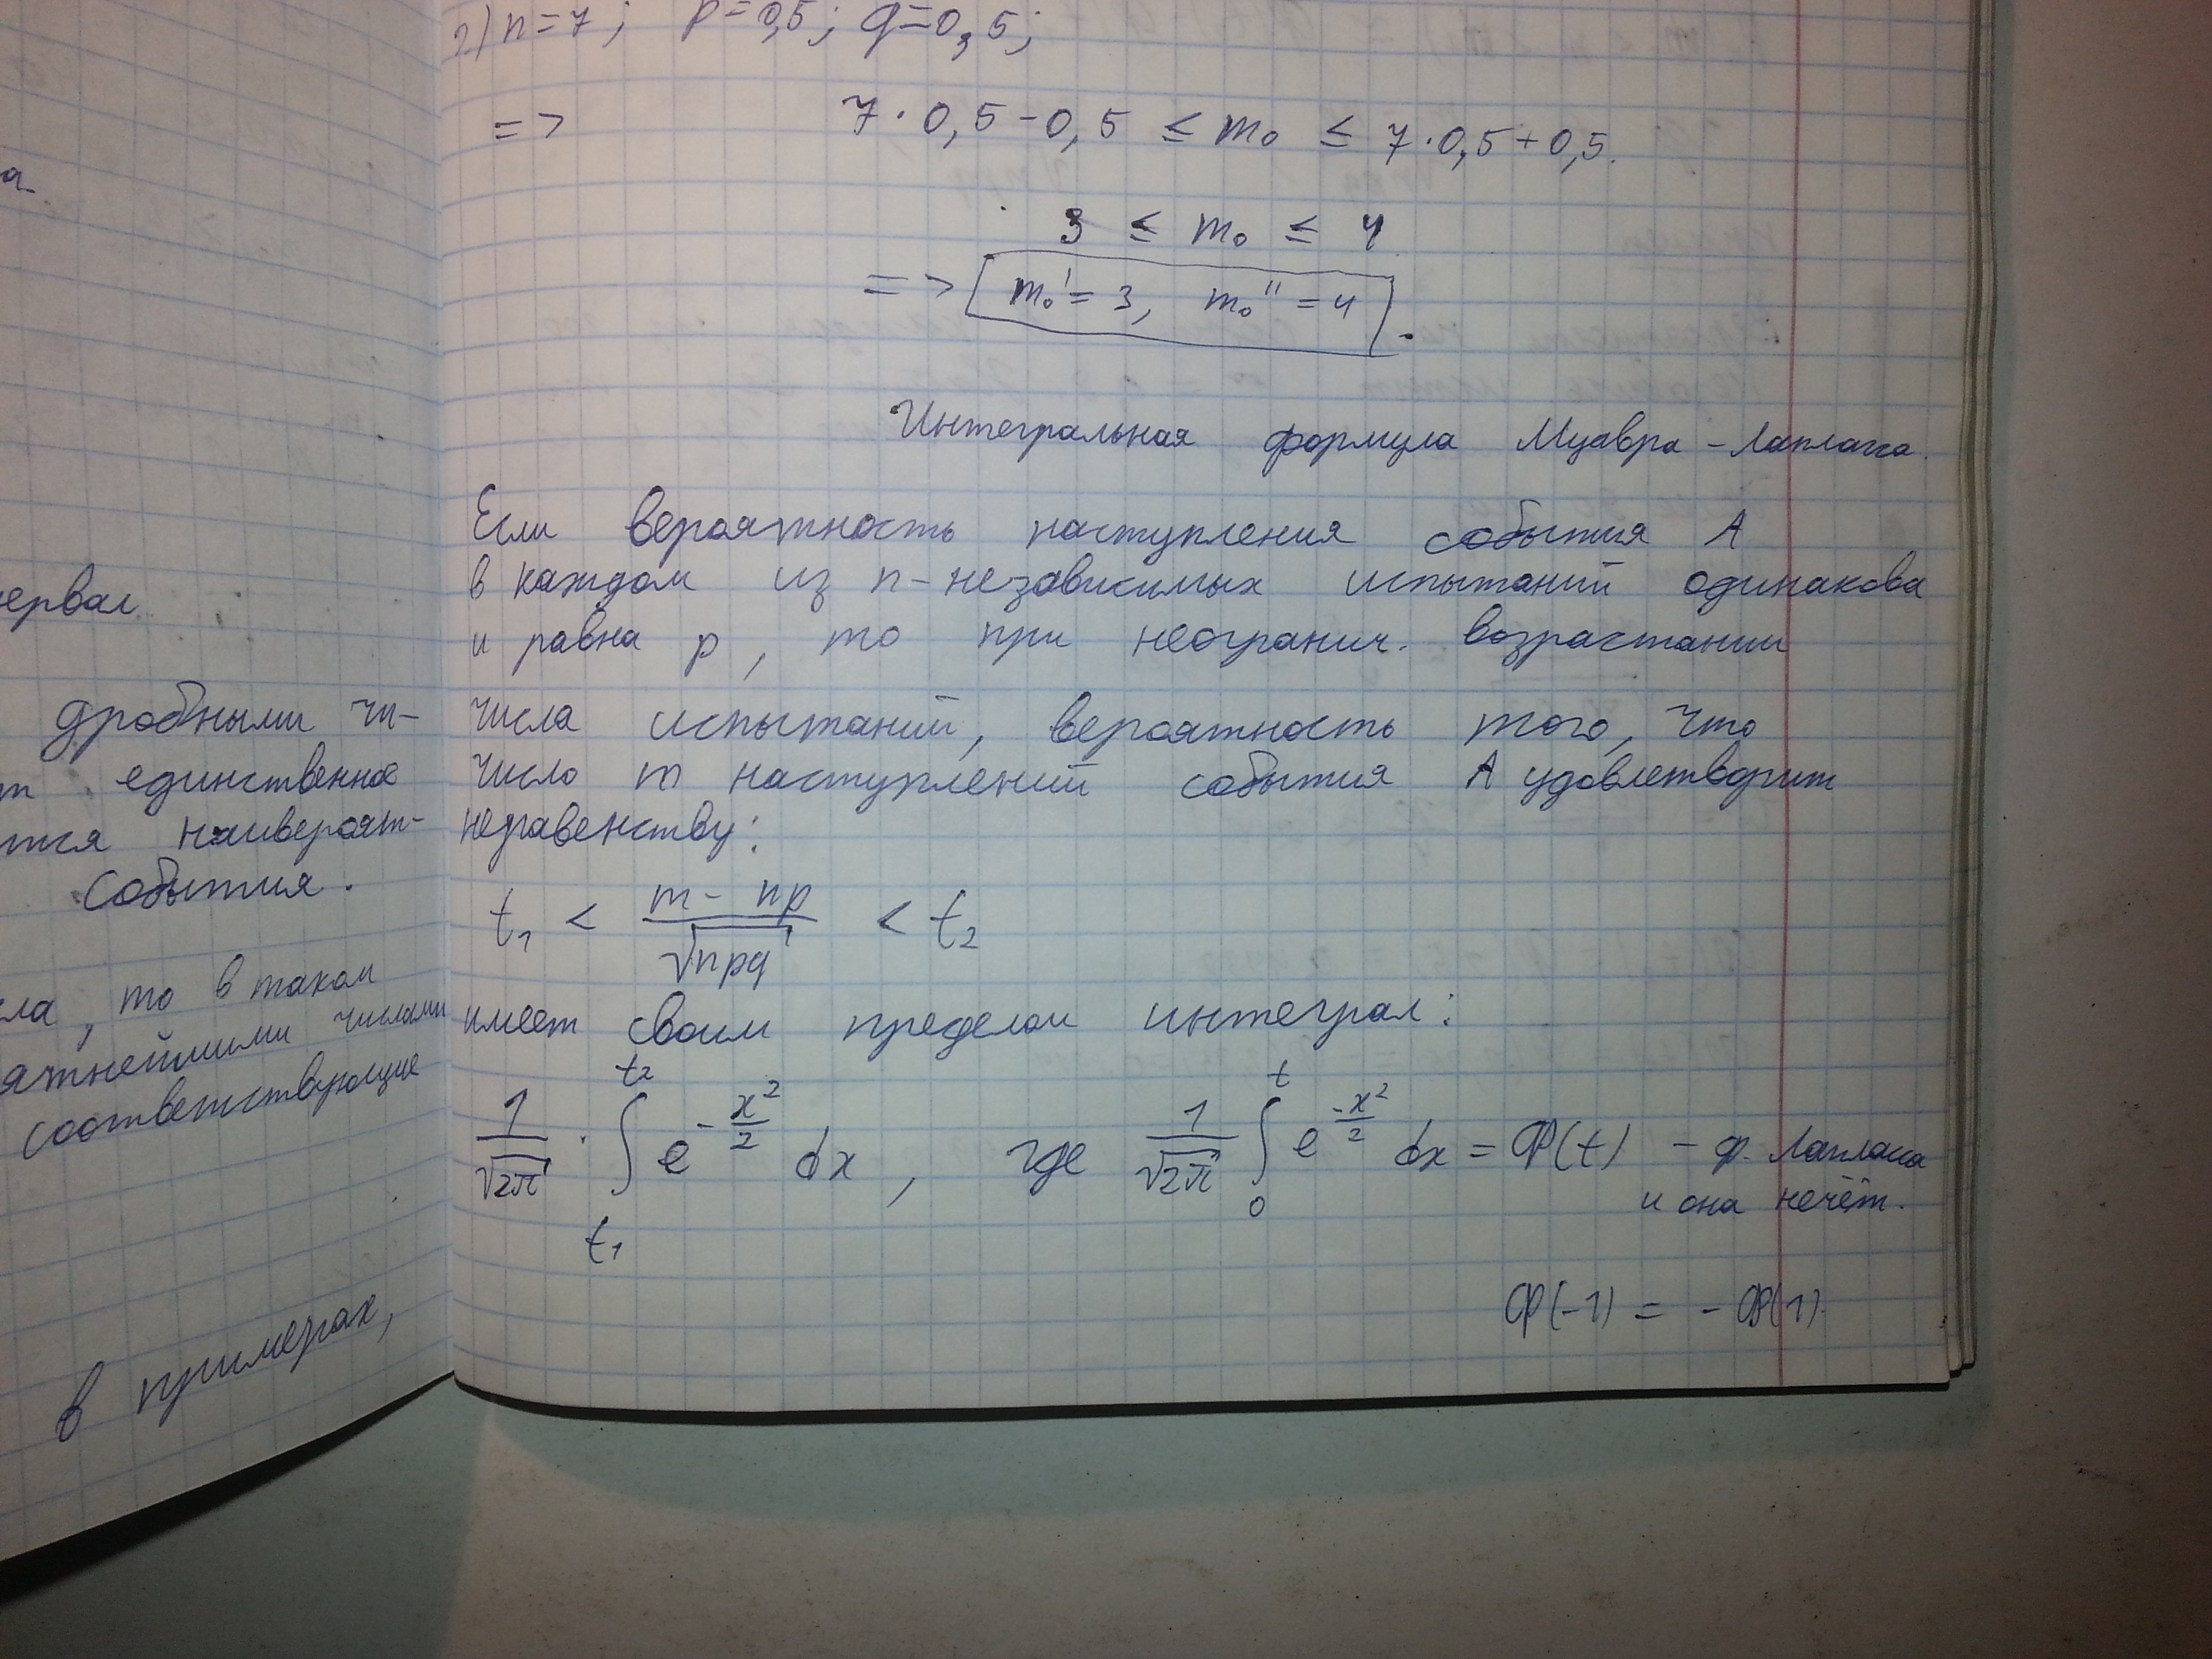 а
ервал
дробными чи-
т единственное
тся наивероят-
события.
ла, то в таком
ятнейшими числами
соответствующие
в примерах,
2) n=7; p=0,5; q=0,5;
=> 7·0,5-0,5 ≤ m₀ ≤ 7·0,5+0,5.
3 ≤ m₀ ≤ 4
=> m₀'=3, m₀''=4.
Интегральная формула Муавра-Лапласа.
Если вероятность наступления события А
в каждом из n-независимых испытаний одинакова
и равна p, то при неогранич. возрастании
числа испытаний, вероятность того, что
число m наступлений события А удовлетворит
неравенству:
t₁ < (m - np)/√(npq) < t₂
имеет своим пределом интеграл:
1/√(2π) · ∫_{t₁}^{t₂} e^{-x²/2} dx, где 1/√(2π) ∫_0^t e^{-x²/2} dx = Ф(t) - ф. Лапласа
и она нечёт.
Ф(-1) = - Ф(1).